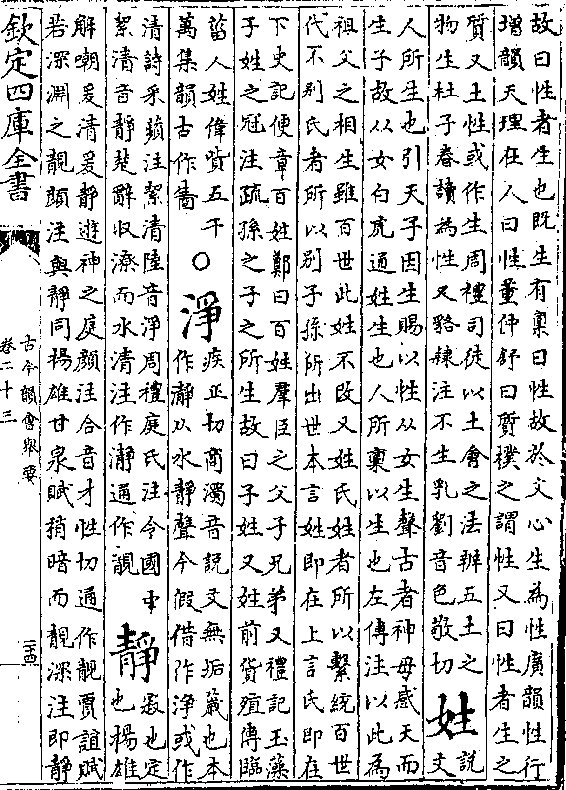 故曰性者生也既生有稟曰性故於文心生為性廣韻性行
增韻天理在人曰性董仲舒曰質樸之謂性又曰性者生之
質又土性或作生周禮司徒以土會之法辨五土之
物生杜子春讀為性又駱辣注不生乳劉音色敬切
姓說文
人所生也引天子因生賜以性从女生聲古者神母感天而
生子故从女白虎通姓生也人所稟以生也左傳注以此為
祖父之相生雖百世此姓不改又姓氏姓者所以繫統百世
代不别氏者所以别子孫所出世本言姓即在上言氏即在
下史記便章百姓鄭曰百姓羣臣之父子兄弟又禮記玉藻
子姓之冠注疏孫之子之所生故曰子姓又姓前貨殖傳臨
菑人姓偉貲五千
萬集韻古作𤯣
○
淨
疾正切商濁音説文無垢薉也本
作瀞从水靜聲今假借作淨或作
清詩采蘋注絜清陸音淨周禮庭氏注令國中
絜清音靜楚辭収潦而水清注作瀞通作靚
靜
寂也定
也楊雄
解嘲爰清爰靜遊神之庭顏注合音才性切通作靚賈誼賦
若深淵之靚顏注與靜同楊雄甘泉賦稍暗而靚深注即靜
欽定四庫全書
古今韻會舉要
卷二十三
二十四